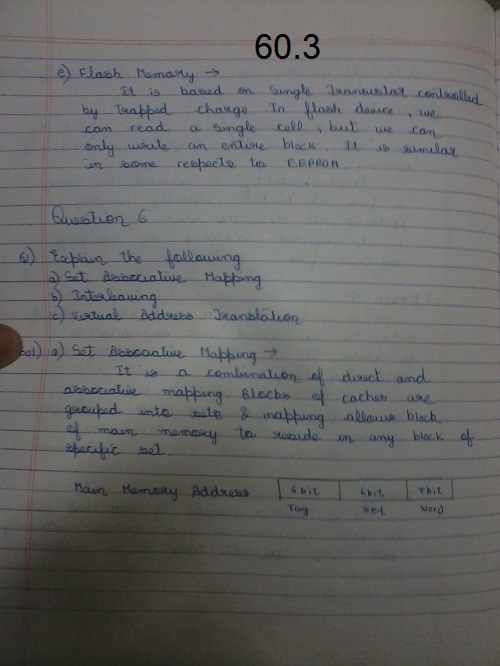 60.3
e) Flash Memory →
It is based on single Transistor controlled
by trapped charge In flash device, we
can read a single cell, but we can
only write an entire block. It is similar
in some respects to EEPROM.
Question 6
Q) Explain the following
a) Set Associative Mapping
b) Interleaving
c) Virtual Address Translation
Sol) a) Set Associative Mapping →
It is a combination of direct and
associative mapping. Blocks of caches are
grouped into sets & mapping allows block
of main memory to reside in any block of
specific set.
Main Memory Address 6 bit 6 bit 4 bit
Tag Set Word